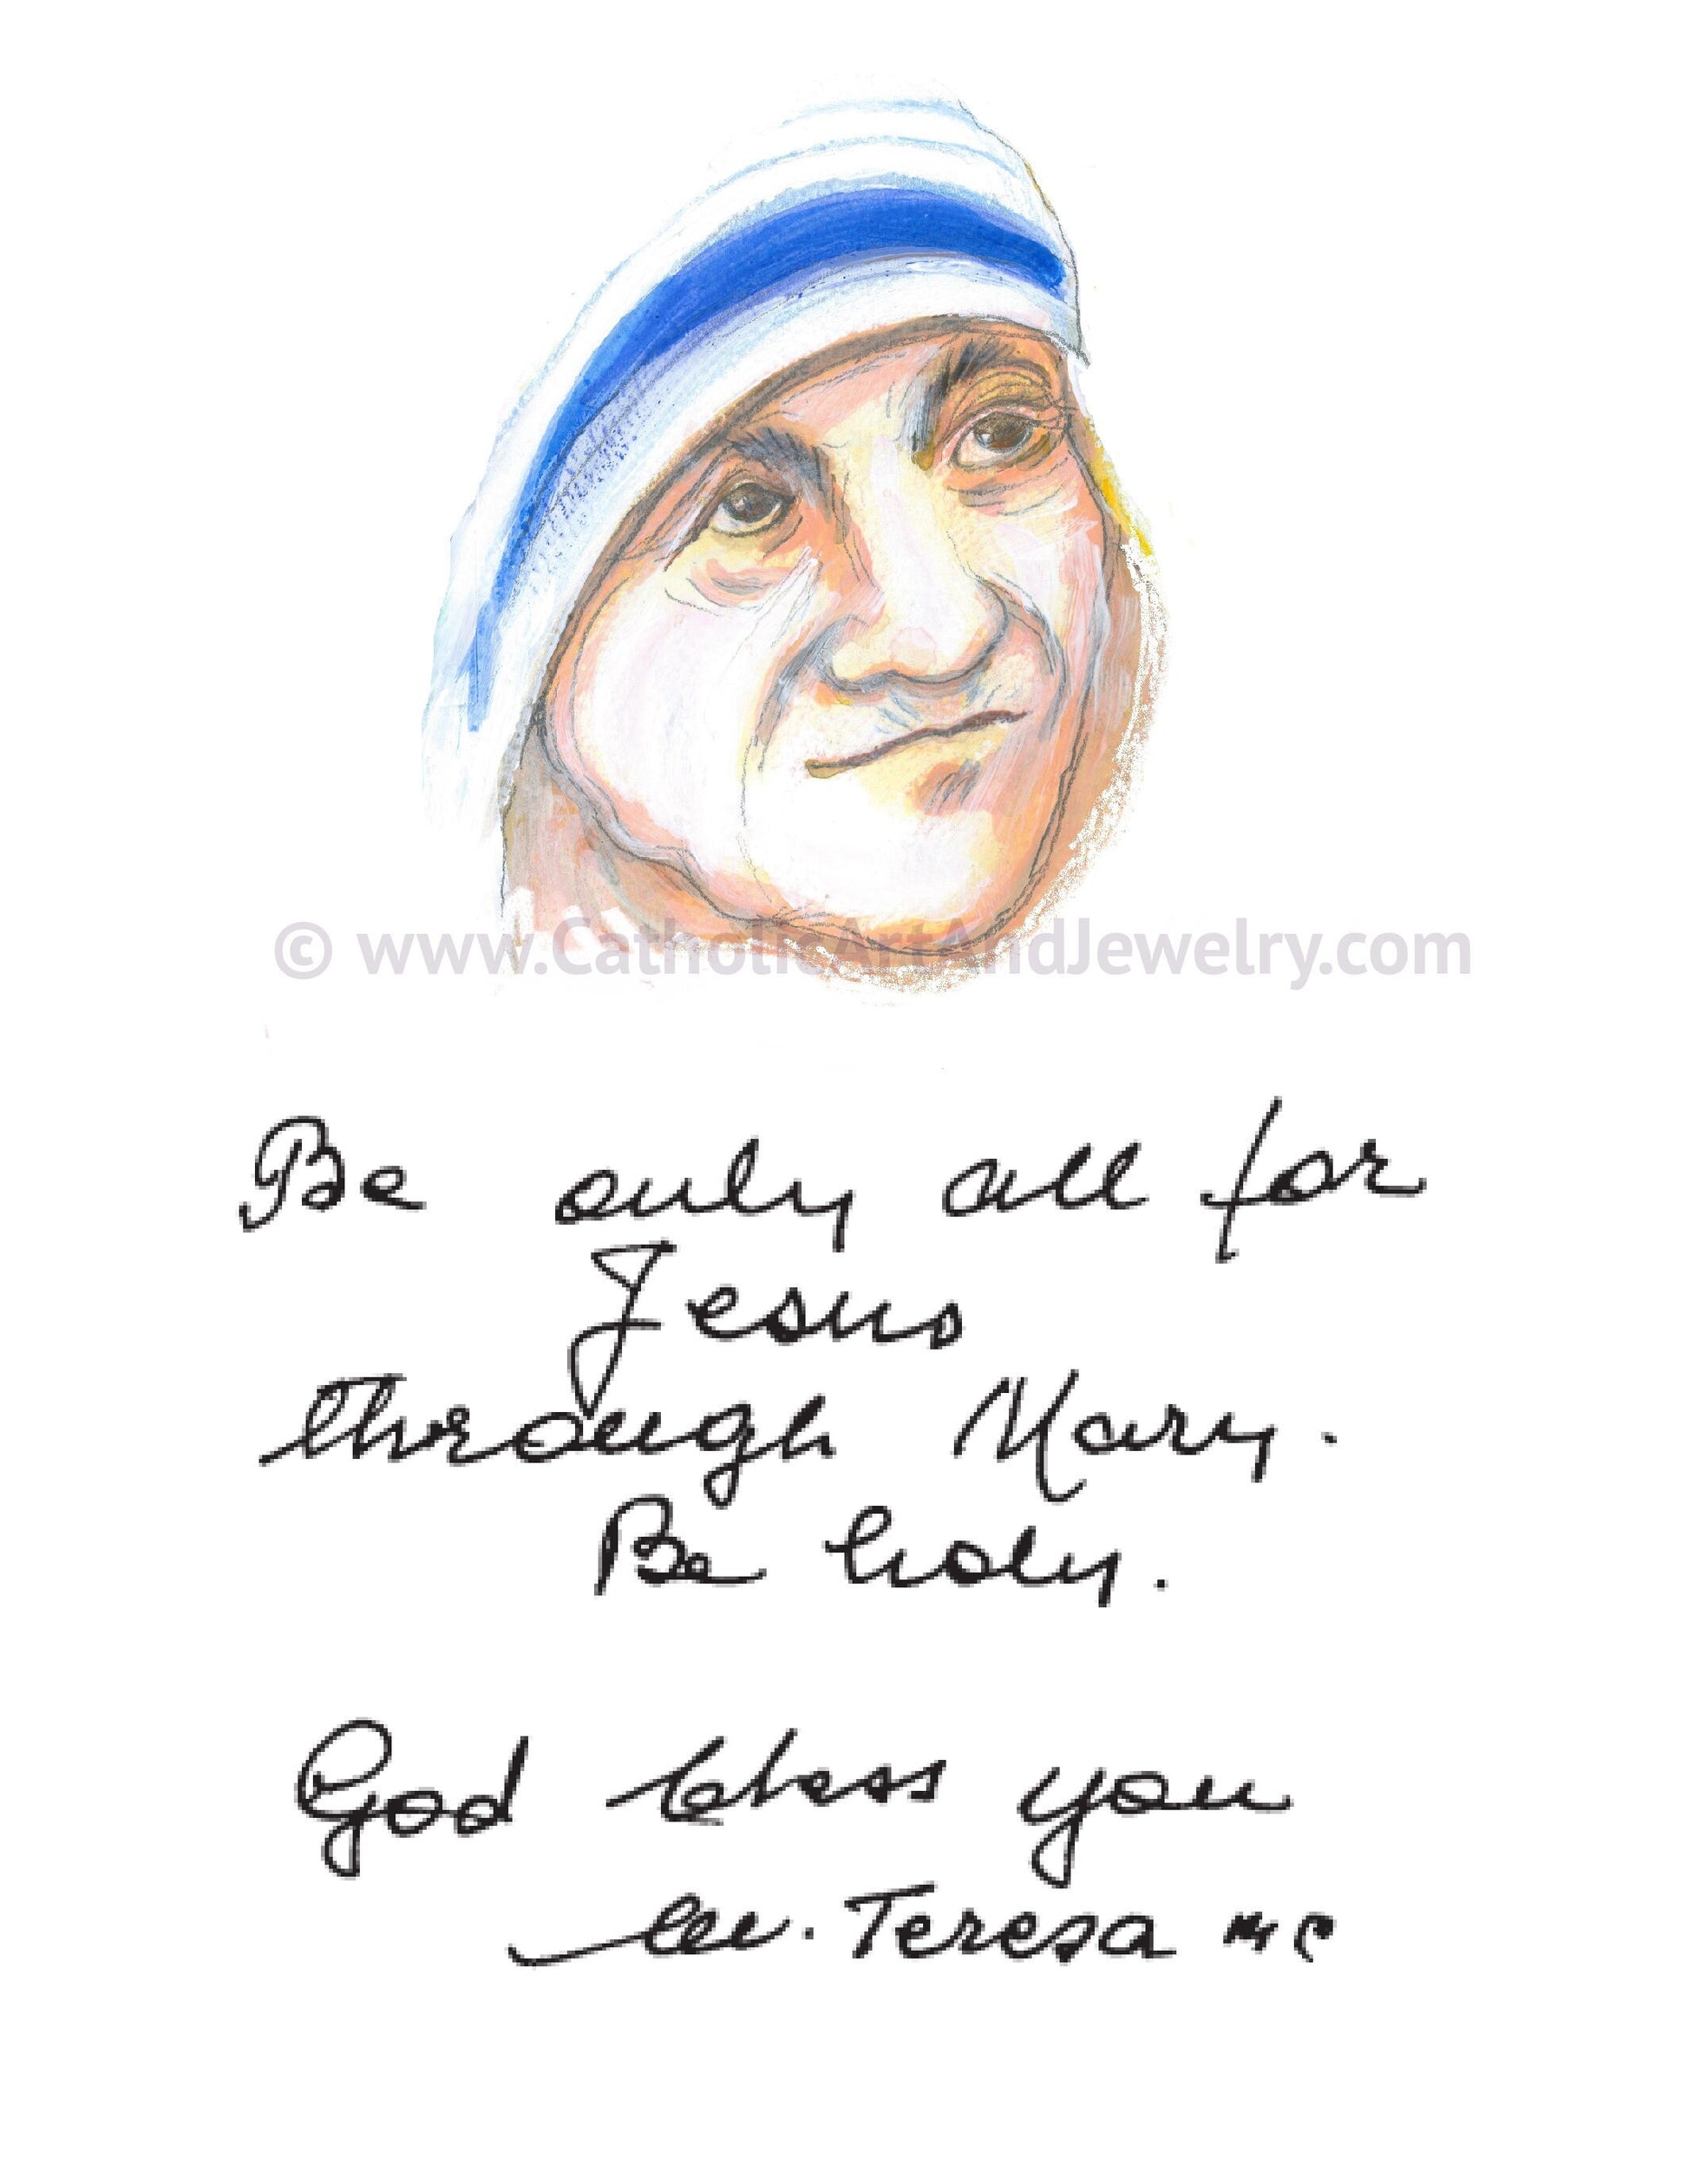 © www.CatholicArtAndJewelry.com
Be only all for
Jesus
through Mary.
Be holy.
God bless you
M. Teresa MC